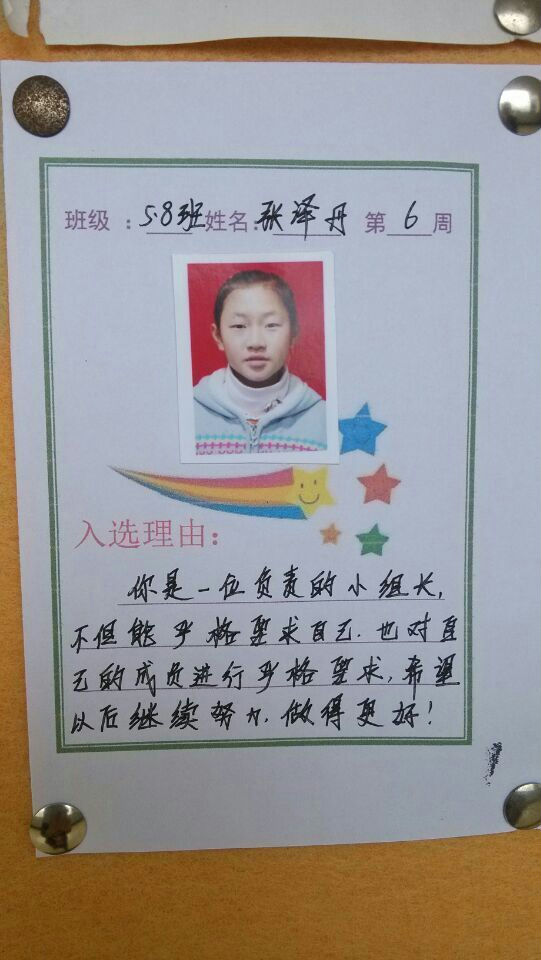 班级：5.8班 姓名：张泽丹 第6周
入选理由：
你是一位负责的小组长，
不但能严格要求自己．也对自
己的成员进行严格要求，希望
以后继续努力．做得更好！